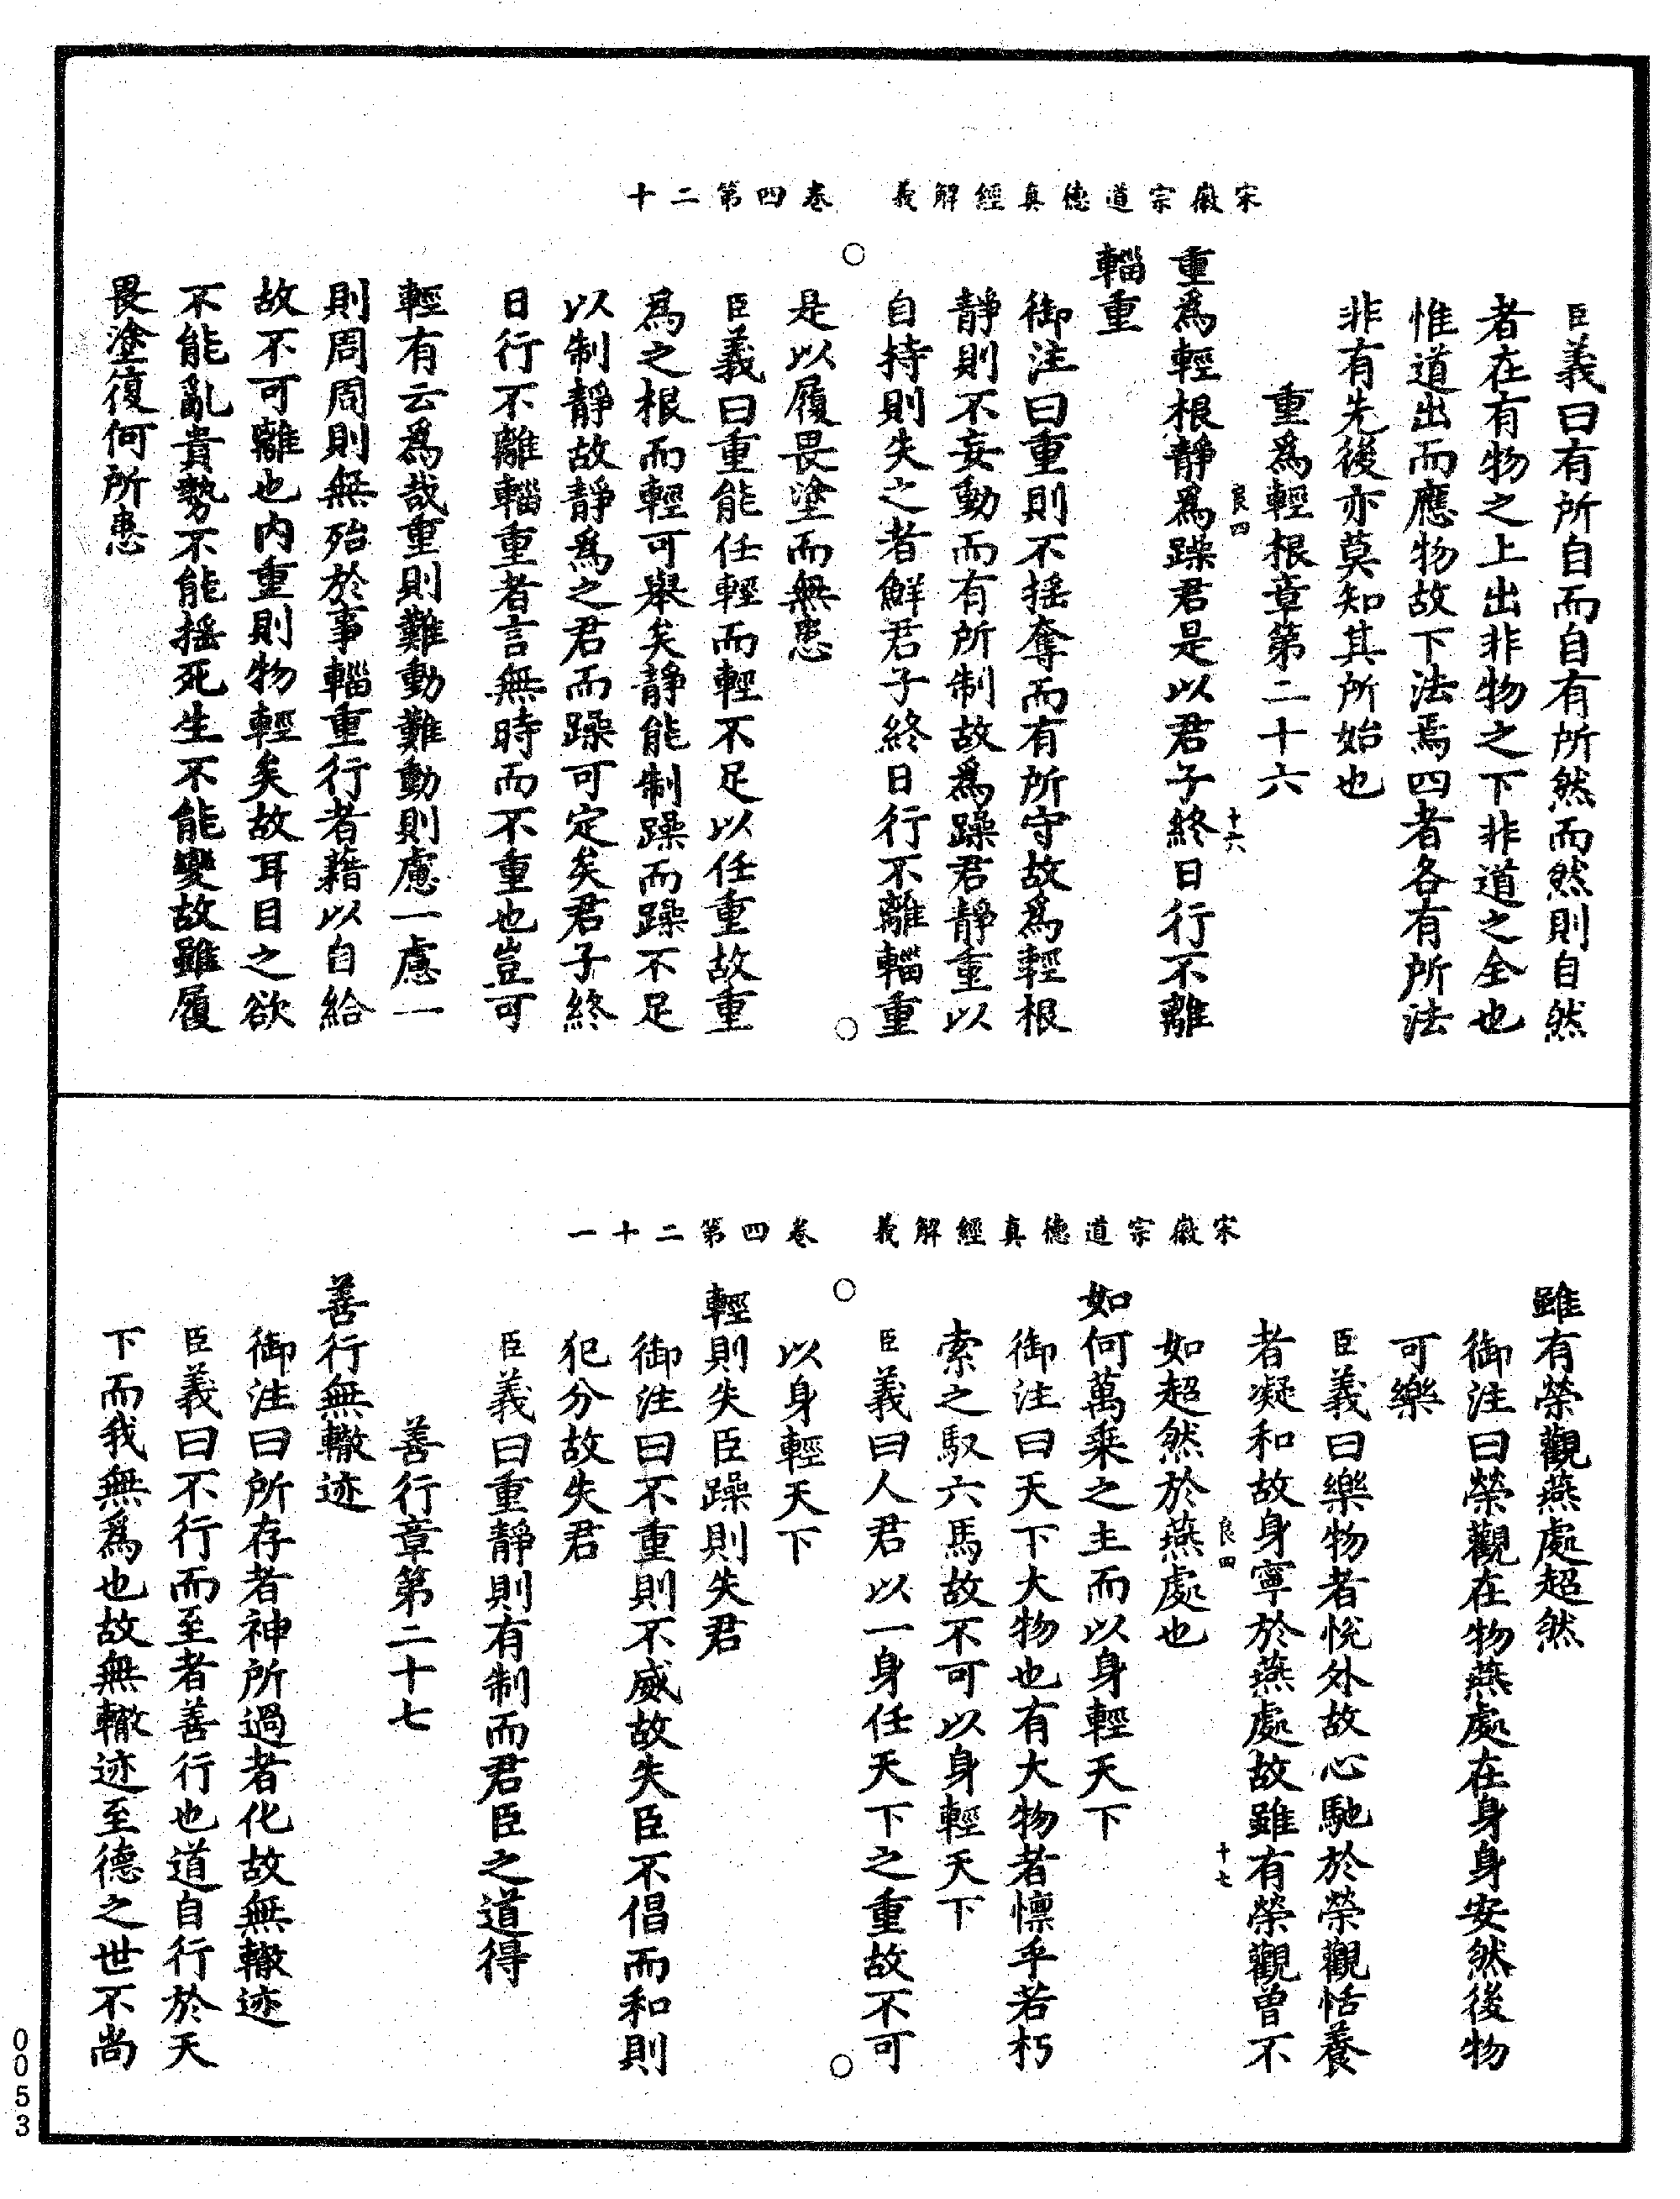 宋徽宗道德真經解義　卷四第二十
臣義曰有所自而自有所然而然則自然
者在有物之上出非物之下非道之全也
惟道出而應物故下法焉四者各有所法
非有先後亦莫知其所始也
重爲輕根章第二十六
良四　十六
重爲輕根靜爲躁君是以君子終日行不離
輜重
御注曰重則不搖奪而有所守故爲輕根
靜則不妄動而有所制故爲躁君靜重以
自持則失之者鮮君子終日行不離輜重
是以履畏塗而無患
臣義曰重能任輕而輕不足以任重故重
爲之根而輕可舉矣靜能制躁而躁不足
以制靜故靜爲之君而躁可定矣君子終
日行不離輜重者言無時而不重也豈可
輕有云爲哉重則難動難動則慮一慮一
則周周則無殆於事輜重行者藉以自給
故不可離也内重則物輕矣故耳目之欲
不能亂貴勢不能搖死生不能變故雖履
畏塗復何所患
宋徽宗道德真經解義　卷四第二十一
雖有榮觀燕處超然
御注曰榮觀在物燕處在身身安然後物
可樂
臣義曰樂物者悅外故心馳於榮觀恬養
者凝和故身寧於燕處故雖有榮觀曾不
良四　十七
如超然於燕處也
如何萬乘之主而以身輕天下
御注曰天下大物也有大物者懍乎若朽
索之馭六馬故不可以身輕天下
臣義曰人君以一身任天下之重故不可
以身輕天下
輕則失臣躁則失君
御注曰不重則不威故失臣不倡而和則
犯分故失君
臣義曰重靜則有制而君臣之道得
善行章第二十七
善行無轍迹
御注曰所存者神所過者化故無轍迹
臣義曰不行而至者善行也道自行於天
下而我無爲也故無轍迹至德之世不尚
0053